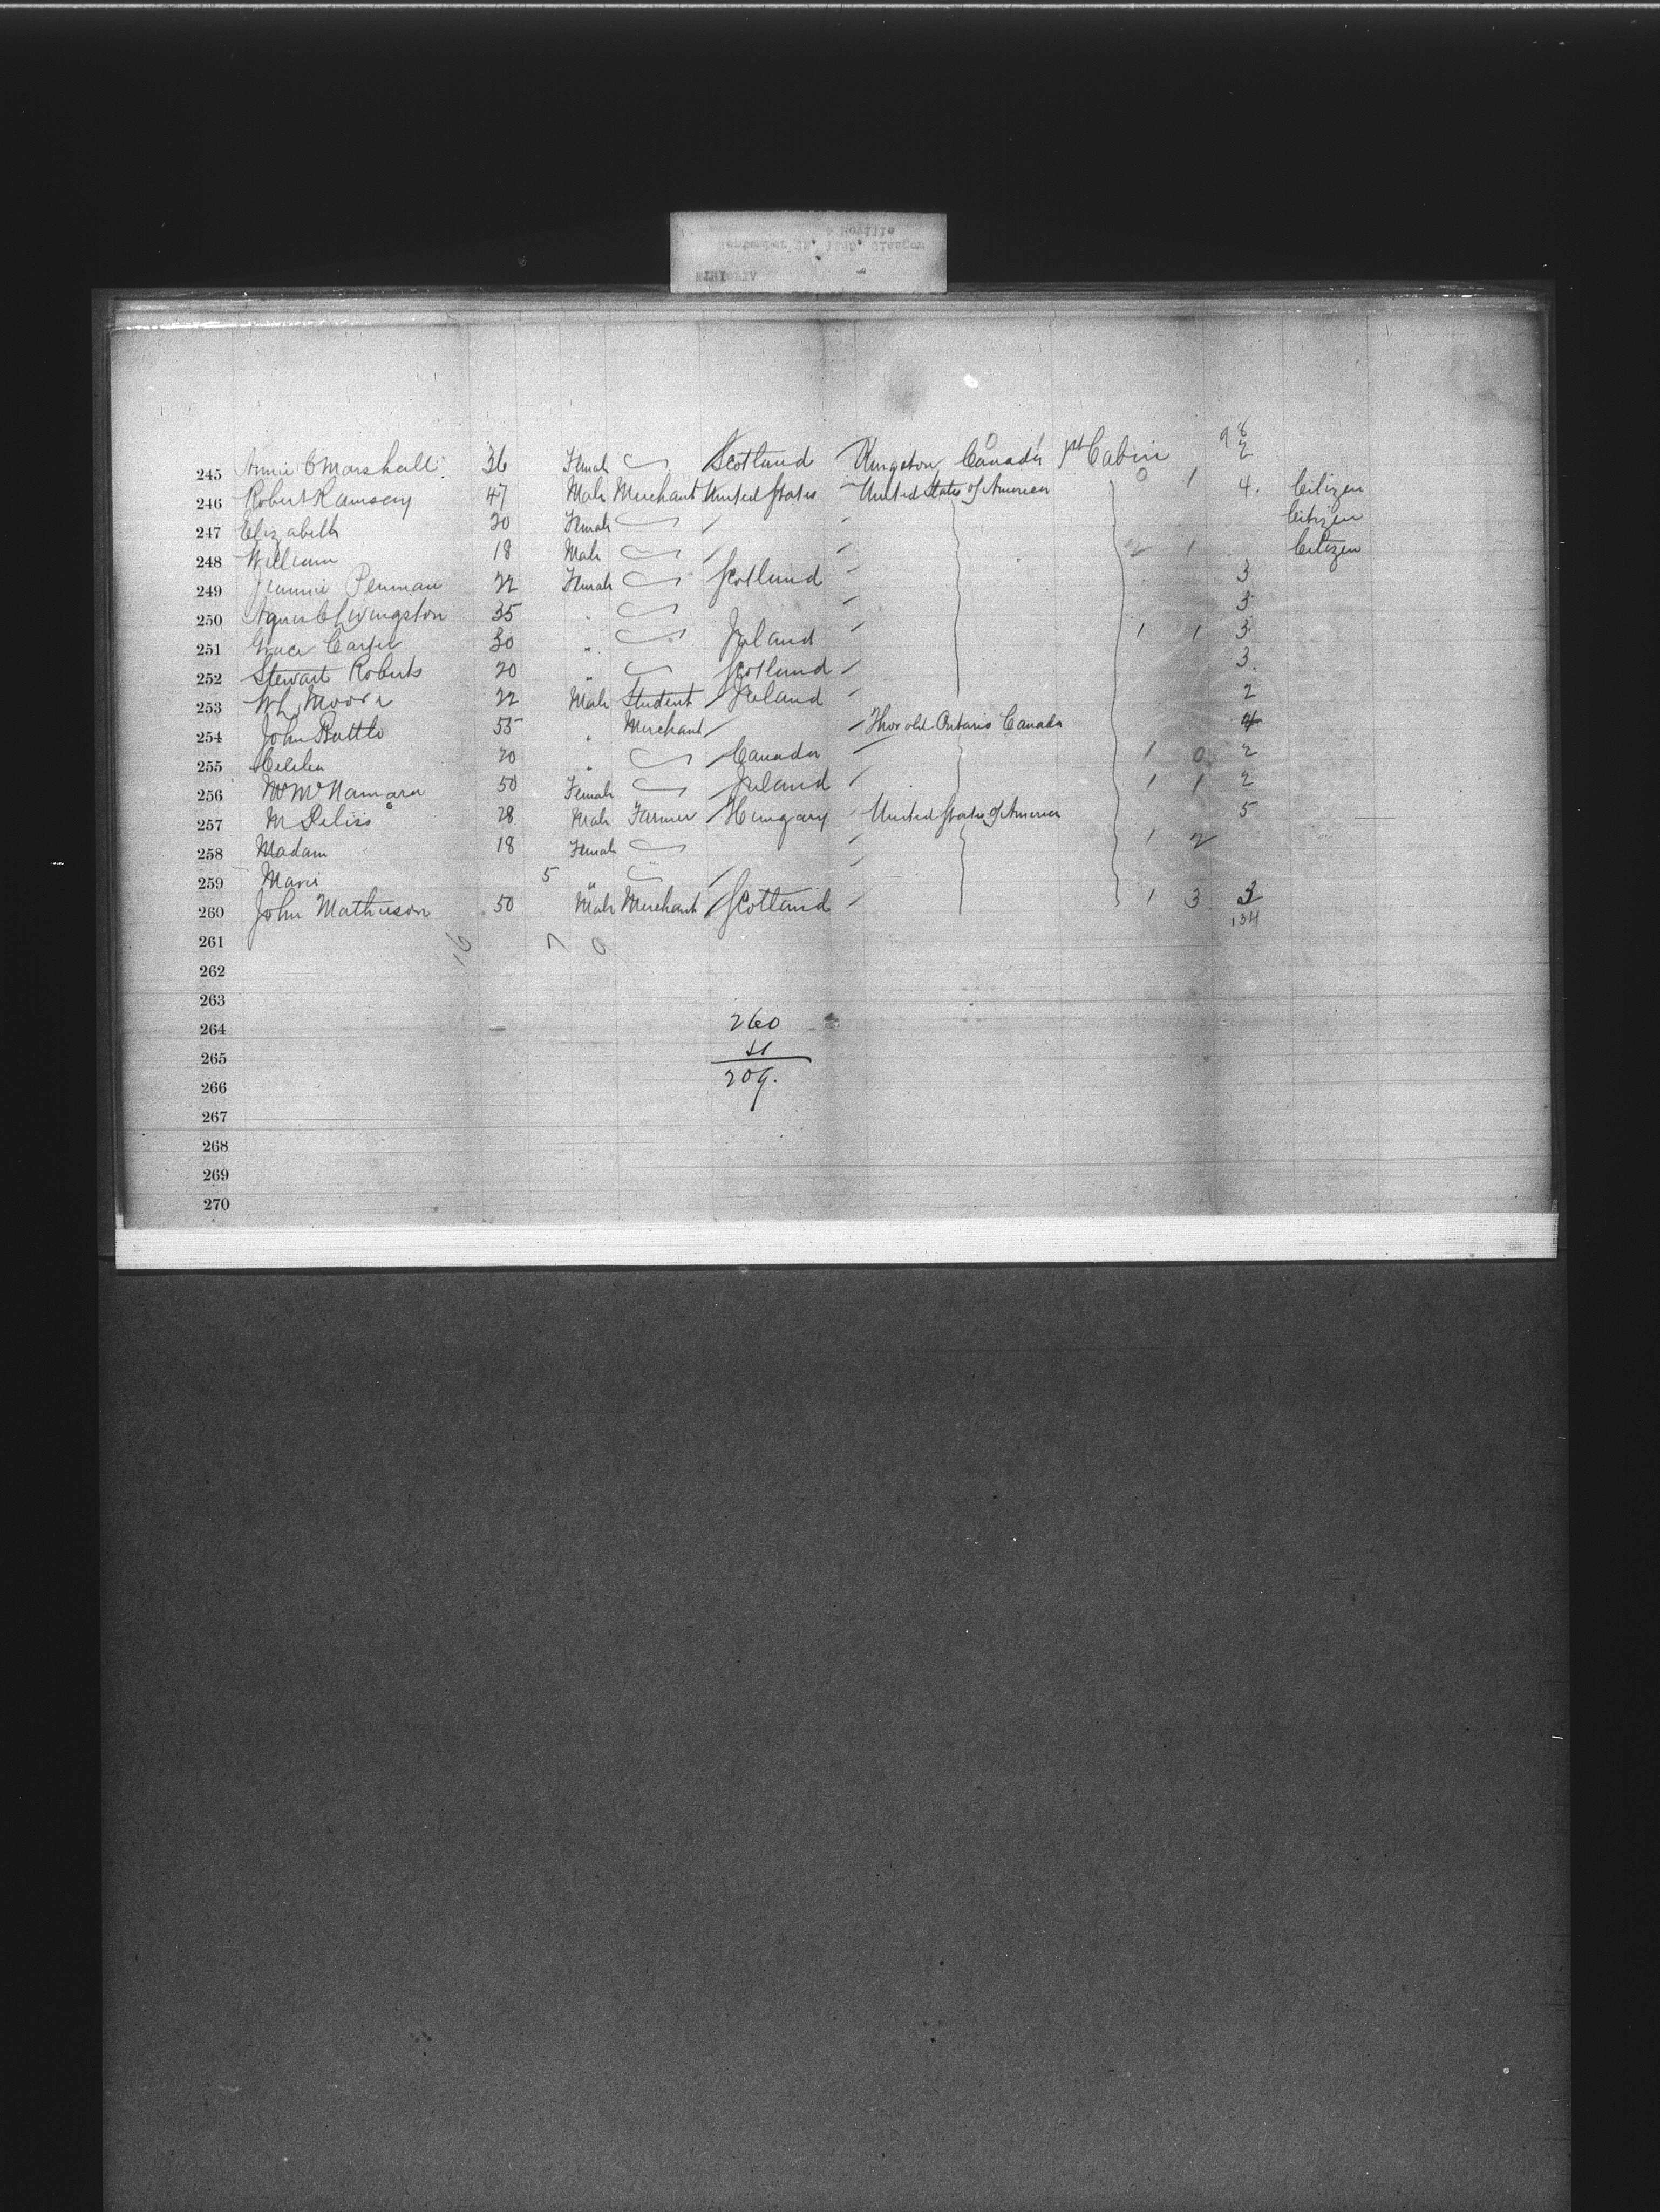 245 Annie C Marshall 36 Female Scotland Kingston Canada 1st Cabin 98 2
246 Robert Ramsay 47 Male Merchant United States United States of America 0 1 4. Citizen
247 Elizabeth 20 Female Citizen
248 William 18 Male 2 1 Citizen
249 Jeannie Penman 22 Female Scotland 3
250 Agnes C Livingston 35 " 3
251 Grace Carter 30 " Ireland 1 1 3
252 Stewart Roberts 20 " Scotland 3.
253 W L Moore 22 Male Student Ireland 2
254 John Battle 55 " Merchant Thorold Ontario Canada 4
255 20 " Canada 1 0 2
256 McNamara 50 Female Ireland 1 1 2
257 M 28 Male Farmer Hungary United States of America 5
258 Madam 18 Female 1 2
259 Marie 5 "
260 John Mathieson 50 Male Merchant Scotland 1 3 3
134
261 16 7 0
262
263
264 260
265 51
266 209.
267
268
269
270